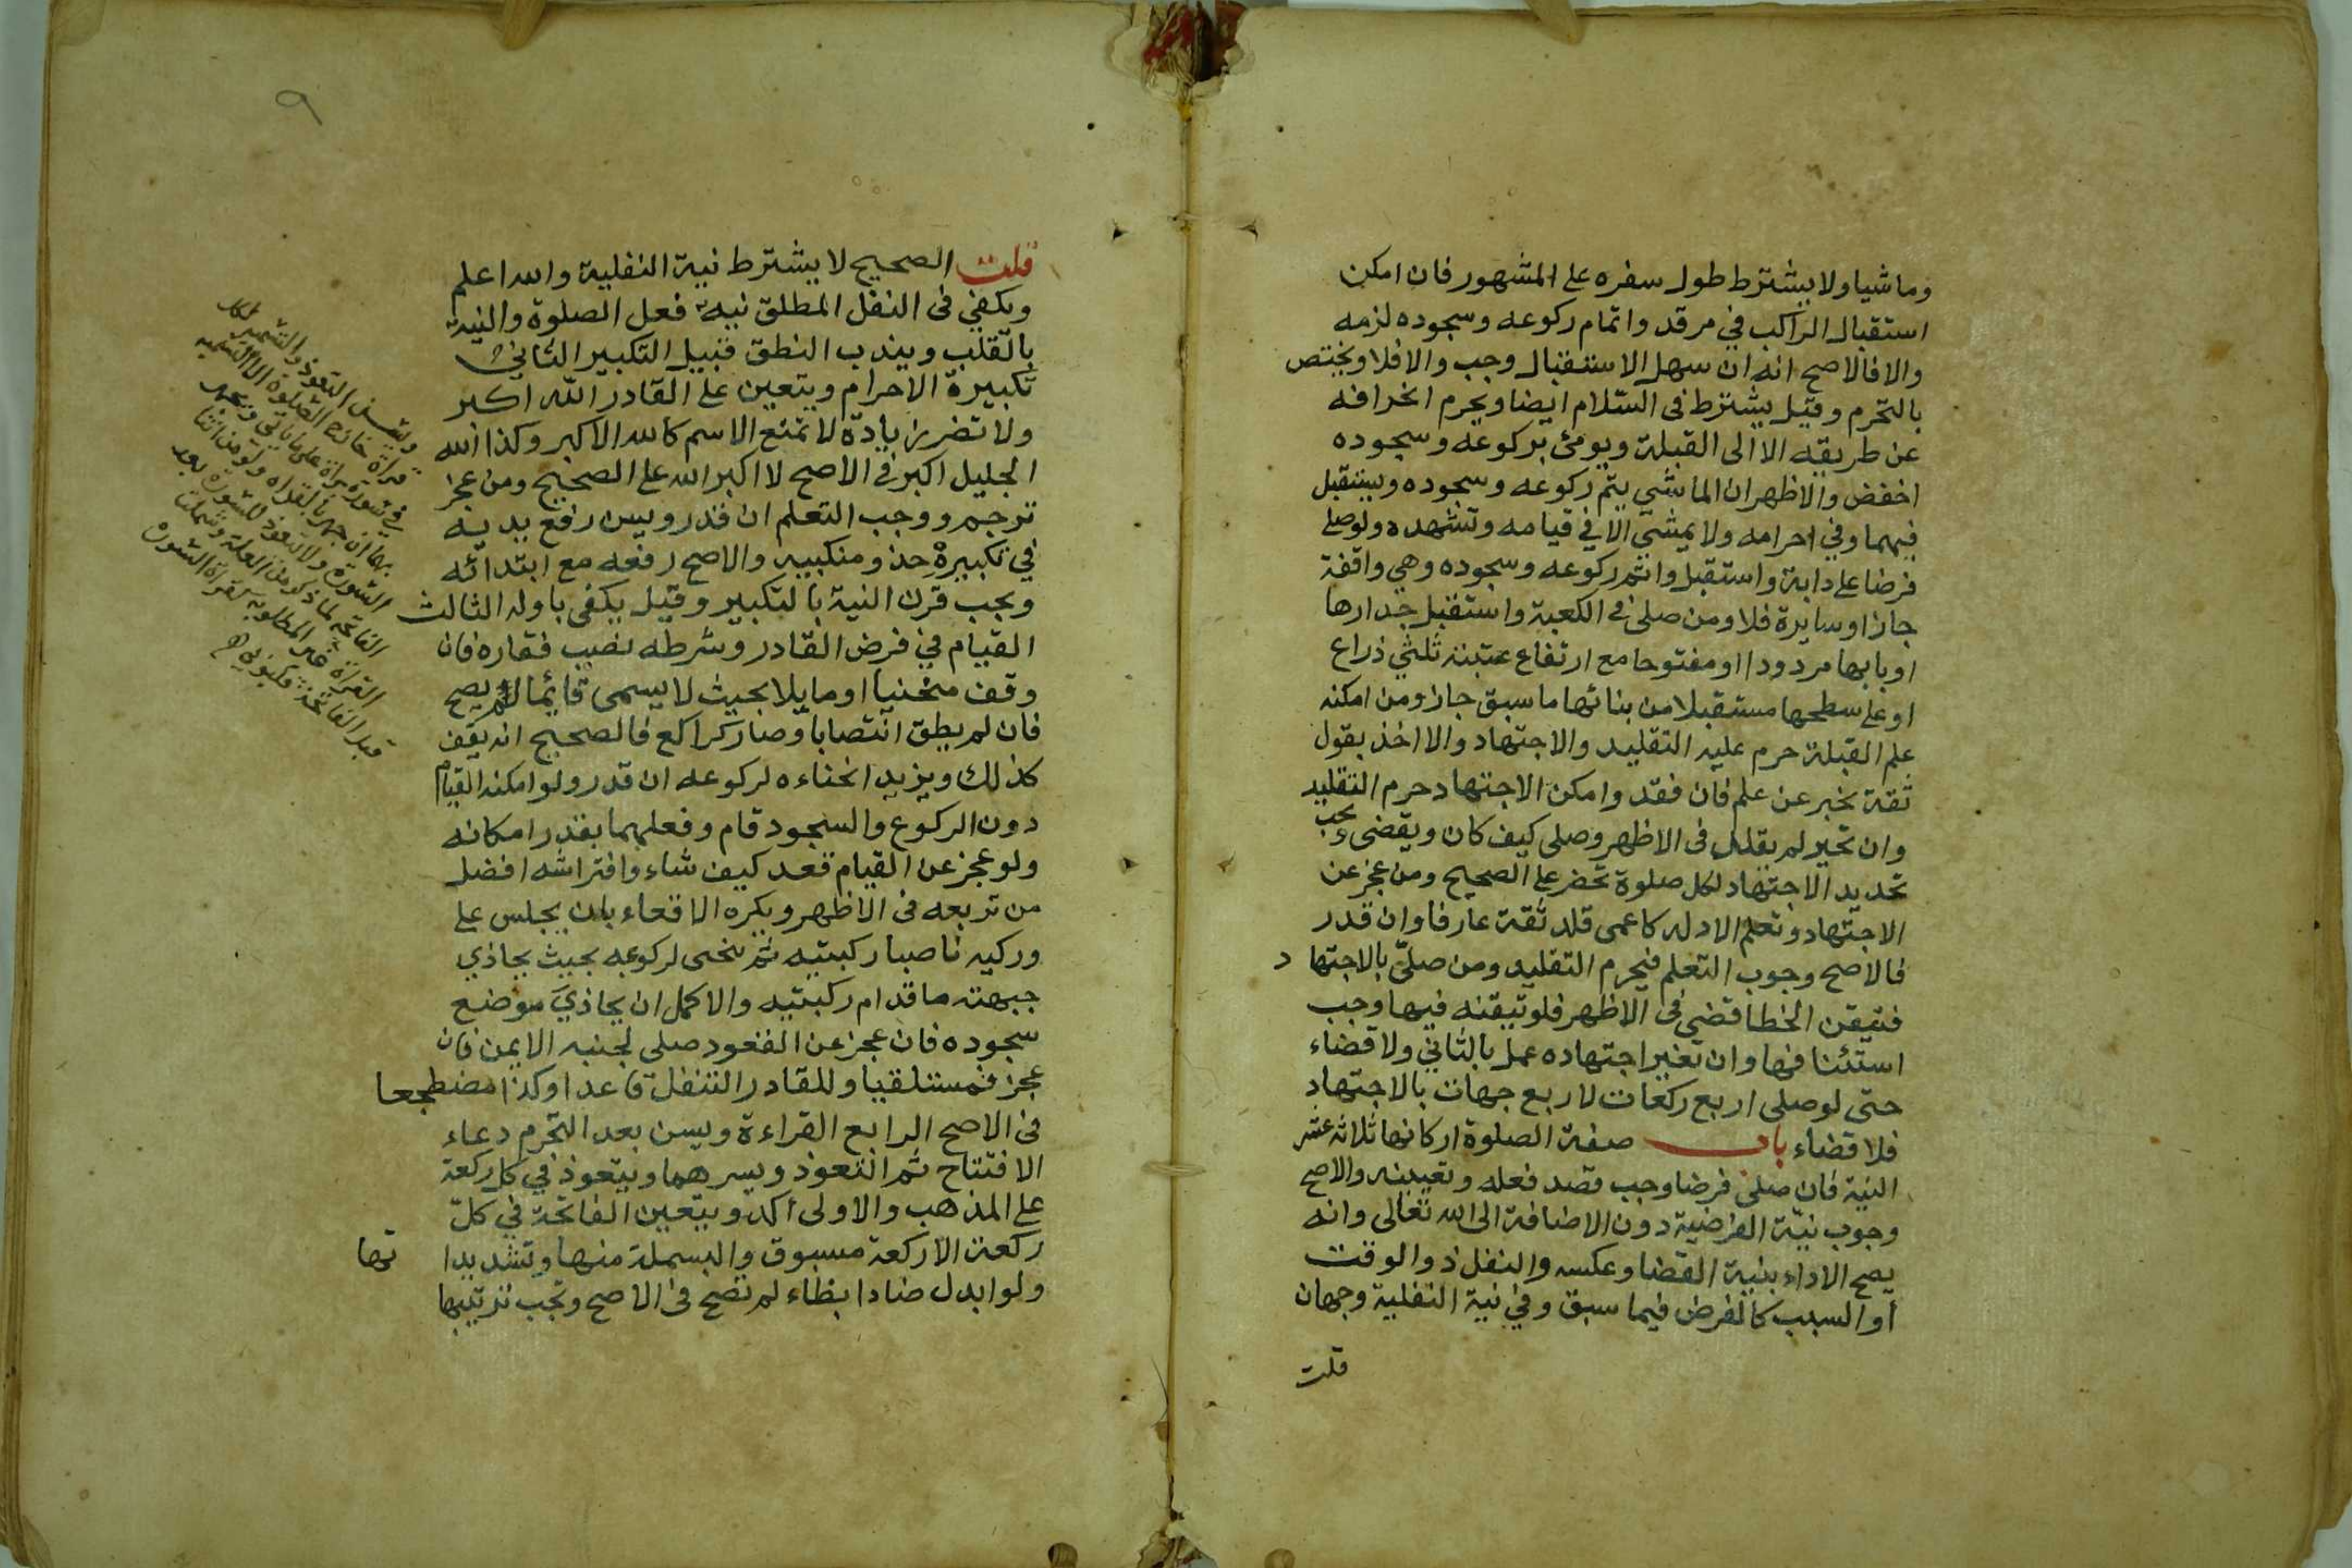 وماشيا ولا يشترط طول سفره على المشهور فان امكن
استقبال الراكب في مرقد واتمام ركوعه وسجوده لزمه
والا فالاصح انه ان سهل الاستقبال وجب والا فلا ويختص
بالتحرم وقيل يشترط فى السلام ايضا ويحرم انحرافه
عن طريقه الا الى القبلة ويومئ بركوعه وسجوده
اخفض والاظهر ان الماشي يتم ركوعه وسجوده ويستقبل
فيهما وفي احرامه ولا يمشي الا في قيامه وتشهده ولو صلى
فرضا على دابة واستقبل واتم ركوعه وسجوده وهي واقفة
جاز او سايرة فلا ومن صلى في الكعبة واستقبل جدارها
او بابها مردودا او مفتوحا مع ارتفاع عتبته ثلثي ذراع
او على سطحها مستقبلا من بنائها ما سبق جاز ومن امكنه
علم القبلة حرم عليه التقليد والاجتهاد والا اخذ بقول
ثقة يخبر عن علم فان فقد وامكن الاجتهاد حرم التقليد
وان تحير لم يقلد فى الاظهر وصلى كيف كان ويقضى ويجب
تجديد الاجتهاد لكل صلوة تحضر على الصحيح ومن عجز عن
الاجتهاد وتعلم الادله كاعمى قلد ثقة عارفا وان قدر
فالاصح وجوب التعلم فيحرم التقليد ومن صلى بالاجتهاد
فتيقن الخطا قضى فى الاظهر فلو تيقنه فيها وجب
استئنافها وان تغير اجتهاده عمل بالثاني ولا قضاء
حتى لو صلى اربع ركعات لاربع جهات بالاجتهاد
فلا قضاء باب صفة الصلوة اركانها ثلاثه عشر
النية فان صلى فرضا وجب قصد فعله وتعيينه والاصح
وجوب نية الفرضية دون الاضافة الى الله تعالى وانه
يصح الاداء بنية القضا وعكسه والنفل ذو الوقت
أو السبب كالفرض فيما سبق وفي نية النفلية وجهان
قلت
٩
قلت الصحيح لا يشترط نية النفلية والله اعلم
ويكفي فى النفل المطلق نية فعل الصلوة والنية
بالقلب ويندب النطق قبيل التكبير الثاني
تكبيرة الاحرام ويتعين على القادر الله اكبر
ولا تضر زيادة لا تمنع الاسم كالله الاكبر وكذا الله
الجليل اكبر في الاصح لا اكبر الله على الصحيح ومن عجز
ترجم ووجب التعلم ان قدر ويسن رفع يديه
في تكبيرة حذو منكبيه والاصح رفعه مع ابتدائه
ويجب قرن النية بالتكبير وقيل يكفى باوله الثالث
القيام في فرض القادر وشرطه نصب فقاره فان
وقف منحنيا او مايلا بحيث لا يسمى قايما لم يصح
فان لم يطق انتصابا وصار كراكع فالصحيح انه يقف
كذلك ويزيد انحناءه لركوعه ان قدر ولو امكنه القيام
دون الركوع والسجود قام وفعلهما بقدر امكانه
ولو عجز عن القيام قعد كيف شاء وافتراشه افضل
من تربعه فى الاظهر ويكره الاقعاء بان يجلس على
وركيه ناصبا ركبتيه ثم ينحنى لركوعه بحيث يحاذي
جبهته ما قدام ركبتيه والاكمل ان يحاذي موضع
سجوده فان عجز عن القعود صلى لجنبه الايمن فان
عجز فمستلقيا وللقادر التنفل قاعدا وكذا مضطجعا
فى الاصح الرابع القراءة ويسن بعد التحرم دعاء
الافتتاح ثم التعوذ ويسرهما ويتعوذ في كل ركعة
على المذهب والاولى أكد وتتعين الفاتحة في كل
ركعة الا ركعة مسبوق والبسملة منها وتشديداتها
ولو ابدل ضادا بظاء لم تصح فى الاصح ويجب ترتيبها
ويسن التعوذ والتسمية لكل
قراة خارج الصلوة الا التسمية
في سورة براة على ما ياتي ويجهر
بها ان جهر بالقراه ولو من اثنا
السورة ولا تعوذ للسورة بعد
الفاتحة لما ذكر من العلة وشملت
القراة غير المطلوبة كقراة السورة
قبل الفاتحة قليوبي